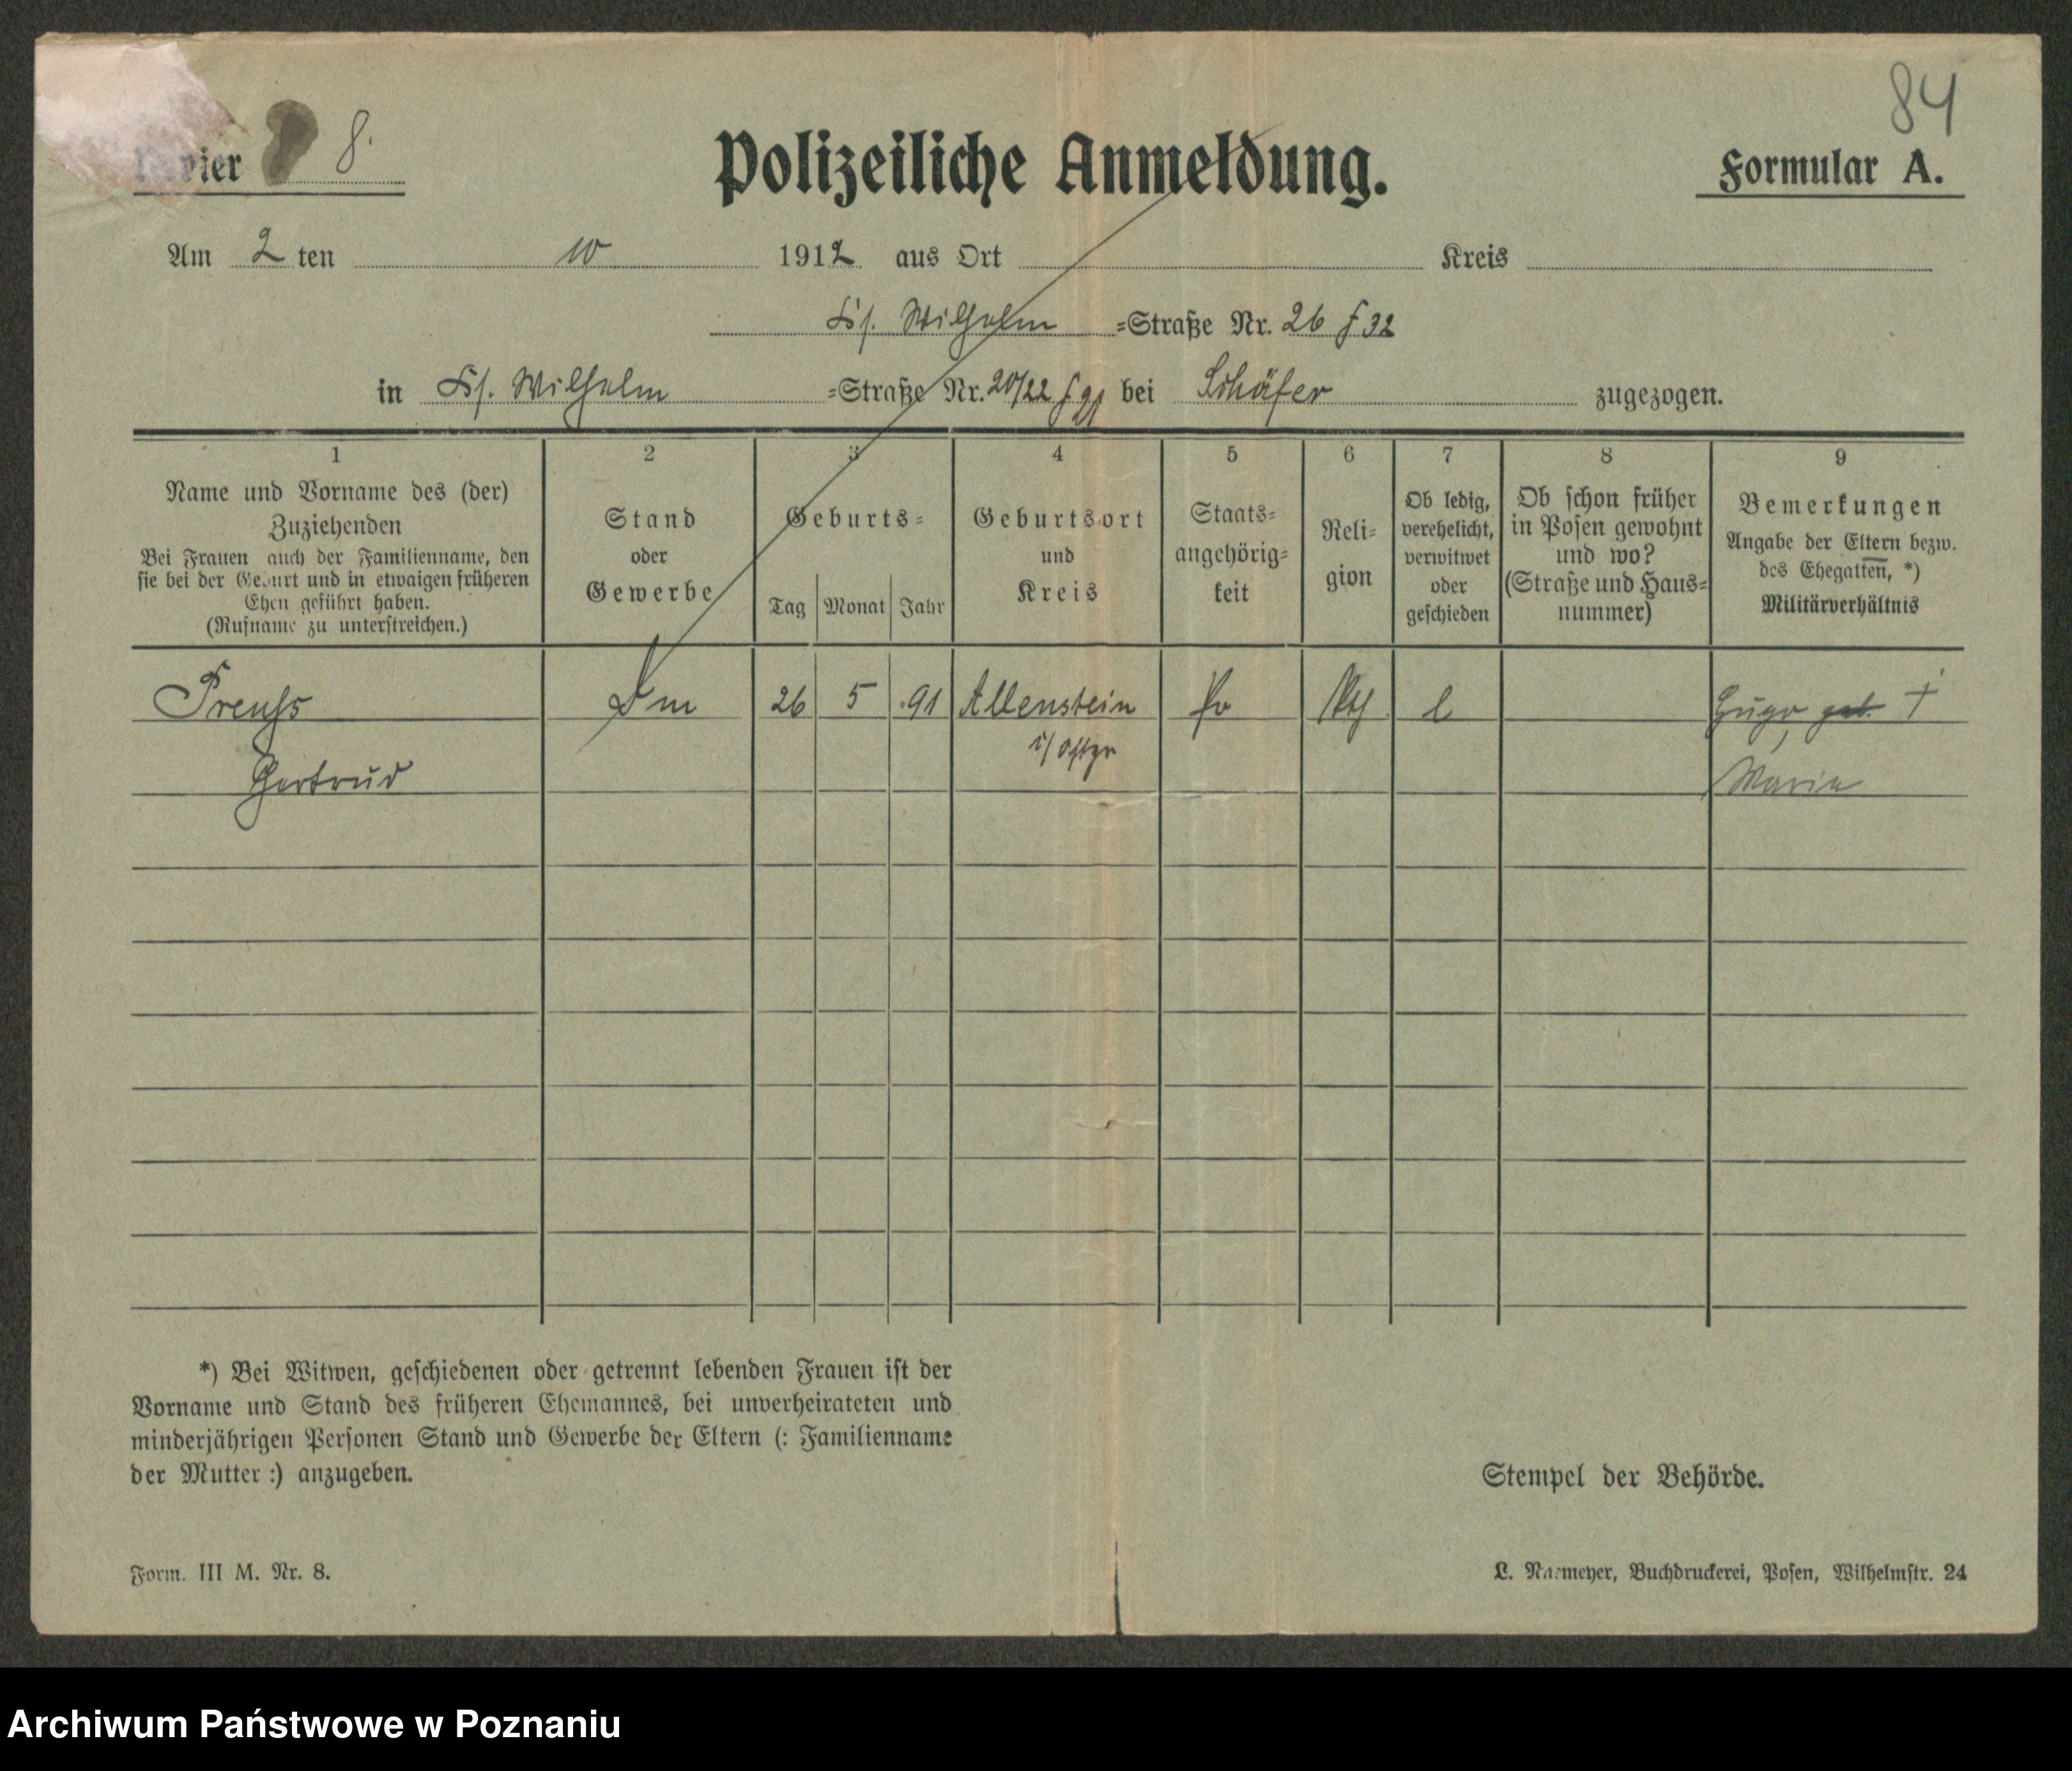 84
Revier 8.
Polizeiliche Anmeldung.
Formular A.
Am 2 ten 10 1912 aus Ort Kreis
Wilhelm =Straße Nr. 26 32
in Wilhelm =Straße Nr. 20/22 bei Schäfer zugezogen.
1 2 3 4 5 6 7 8 9
Name und Vorname des (der)
Zuziehenden
Bei Frauen auch der Familienname, den
sie bei der Geburt und in etwaigen früheren
Ehen geführt haben.
(Rufname zu unterstreichen.)
Stand
oder
Gewerbe
Geburts=
Tag Monat Jahr
Geburtsort
und
Kreis
Staats=
angehörig=
keit
Reli=
gion
Ob ledig,
verehelicht,
verwitwet
oder
geschieden
Ob schon früher
in Posen gewohnt
und wo?
(Straße und Haus=
nummer)
Bemerkungen
Angabe der Eltern bezw.
des Ehegatten, *)
Militärverhältnis
Preuß 26 5 91 Allenstein l Hugo geb. †
i/Ostpr
Gertrud Maria
*) Bei Witwen, geschiedenen oder getrennt lebenden Frauen ist der
Vorname und Stand des früheren Ehemannes, bei unverheirateten und
minderjährigen Personen Stand und Gewerbe der Eltern (: Familienname
der Mutter :) anzugeben.
Stempel der Behörde.
Form. III M. Nr. 8.
Buchdruckerei, Posen, Wilhelmstr. 24
Archiwum Państwowe w Poznaniu